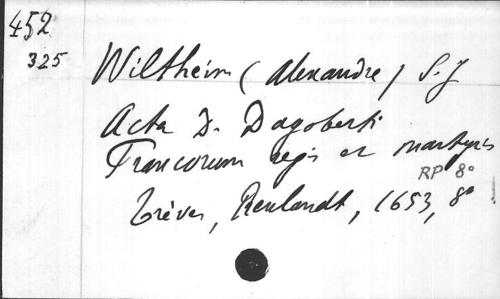 452
325
Wiltheim (Alexandre) S.J
Acta D. Dagoberti
Francorum regis et martyris
RP 8°
Trèves, Reulandt, 1653, 8°